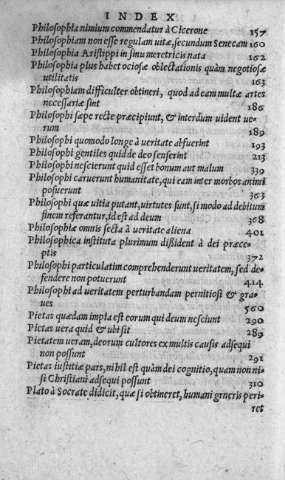 INDEX
Philosophia nimium commendatur à Cicerone 157
Philosophiam non esse regulam uitæ, secundum Senecam 160
Philosophia Aristippi in sinu meretricis nata 162
Philosophia plus habet ociosæ oblectationis quàm negotiosæ
utilitatis 163
Philosophiam difficulter obtineri, quod ad eam multæ artes
necessariæ sint 186
Philosophi sæpe recte præcipiunt, & interdum uident ue-
rum 189
Philosophi quomodo longè à ueritate abfuerint 193
Philosophi gentiles quid de deo senserint 213
Philosophi nescierunt quid esset bonum aut malum 339
Philosophi caruerunt humanitate, qui eam inter morbos animi
posuerunt 363
Philosophi quæ uitia putant, uirtutes sunt, si modo ad debitum
finem referantur, id est ad deum 368
Philosophia omnis secta à ueritate aliena 401
Philosophica instituta plurimum dissident à dei præce-
ptis 372
Philosophi particulatim comprehenderunt ueritatem, sed de-
fendere non potuerunt 414
Philosophi ad ueritatem perturbandam pernitiosi & gra-
ues 560
Pietas quædam impia est eorum qui deum nesciunt 290
Pietas uera quid & ubi sit 289
Pietatem ueram, deorum cultores ex multis causis adsequi
non possunt 291
Pietas iustitiæ pars, nihil est quàm dei cognitio, quam non ni-
si Christiani adsequi possunt 310
Plato à Socrate didicit, quæ si obtineret, humani generis peri-
ret